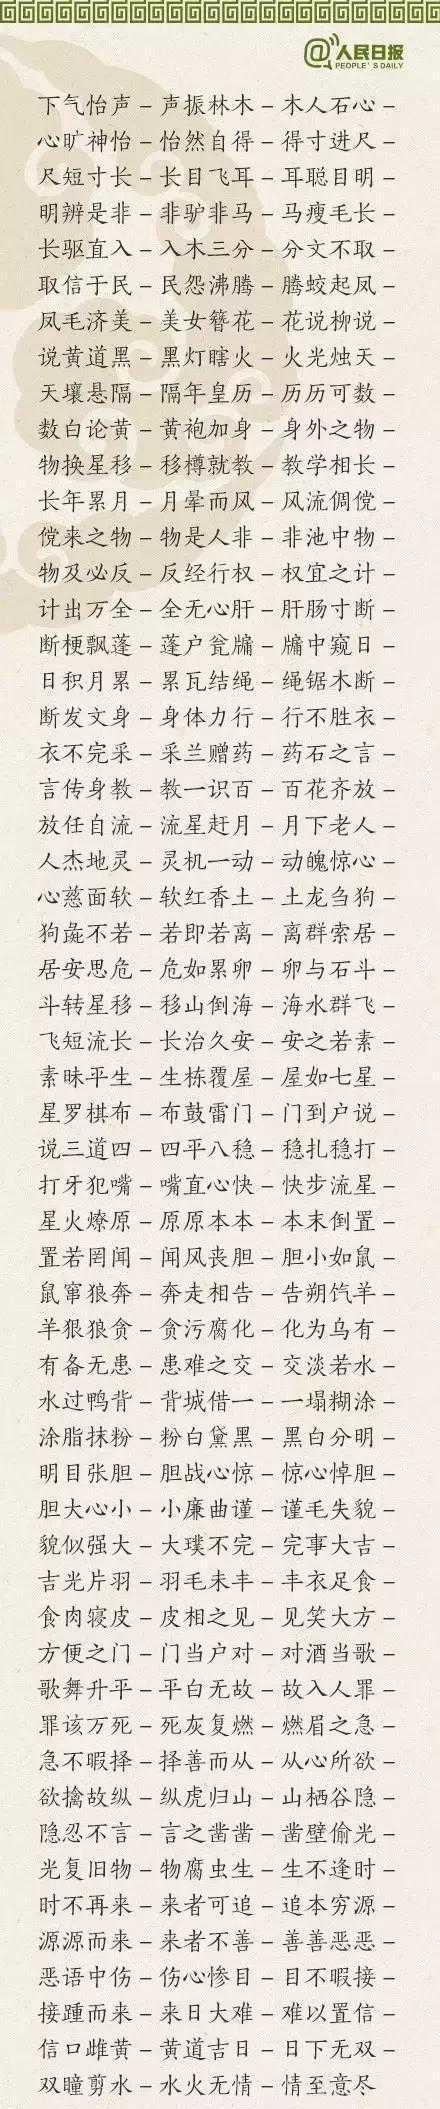 @人民日报
PEOPLE'S DAILY
下气怡声－声振林木－木人石心－
心旷神怡－怡然自得－得寸进尺－
尺短寸长－长目飞耳－耳聪目明－
明辨是非－非驴非马－马瘦毛长－
长驱直入－入木三分－分文不取－
取信于民－民怨沸腾－腾蛟起凤－
凤毛济美－美女簪花－花说柳说－
说黄道黑－黑灯瞎火－火光烛天－
天壤悬隔－隔年皇历－历历可数－
数白论黄－黄袍加身－身外之物－
物换星移－移樽就教－教学相长－
长年累月－月晕而风－风流倜傥－
傥来之物－物是人非－非池中物－
物及必反－反经行权－权宜之计－
计出万全－全无心肝－肝肠寸断－
断梗飘蓬－蓬户瓮牖－牖中窥日－
日积月累－累瓦结绳－绳锯木断－
断发文身－身体力行－行不胜衣－
衣不完采－采兰赠药－药石之言－
言传身教－教一识百－百花齐放－
放任自流－流星赶月－月下老人－
人杰地灵－灵机一动－动魄惊心－
心慈面软－软红香土－土龙刍狗－
狗彘不若－若即若离－离群索居－
居安思危－危如累卵－卵与石斗－
斗转星移－移山倒海－海水群飞－
飞短流长－长治久安－安之若素－
素昧平生－生栋覆屋－屋如七星－
星罗棋布－布鼓雷门－门到户说－
说三道四－四平八稳－稳扎稳打－
打牙犯嘴－嘴直心快－快步流星－
星火燎原－原原本本－本末倒置－
置若罔闻－闻风丧胆－胆小如鼠－
鼠窜狼奔－奔走相告－告朔饩羊－
羊狠狼贪－贪污腐化－化为乌有－
有备无患－患难之交－交淡若水－
水过鸭背－背城借一－一塌糊涂－
涂脂抹粉－粉白黛黑－黑白分明－
明目张胆－胆战心惊－惊心悼胆－
胆大心小－小廉曲谨－谨毛失貌－
貌似强大－大璞不完－完事大吉－
吉光片羽－羽毛未丰－丰衣足食－
食肉寝皮－皮相之见－见笑大方－
方便之门－门当户对－对酒当歌－
歌舞升平－平白无故－故入人罪－
罪该万死－死灰复燃－燃眉之急－
急不暇择－择善而从－从心所欲－
欲擒故纵－纵虎归山－山栖谷隐－
隐忍不言－言之凿凿－凿壁偷光－
光复旧物－物腐虫生－生不逢时－
时不再来－来者可追－追本穷源－
源源而来－来者不善－善善恶恶－
恶语中伤－伤心惨目－目不暇接－
接踵而来－来日大难－难以置信－
信口雌黄－黄道吉日－日下无双－
双瞳剪水－水火无情－情至意尽